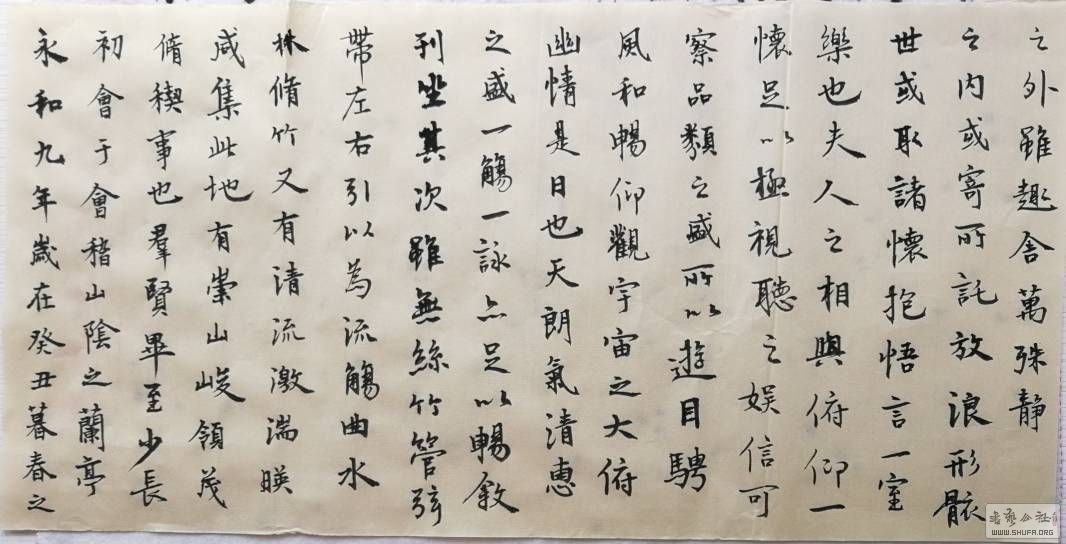 永和九年歲在癸丑暮春之
初會于會稽山陰之蘭亭
脩稧事也羣賢畢至少長
咸集此地有崇山峻領茂
林脩竹又有清流激湍暎
帶左右引以為流觴曲水
列坐其次雖無絲竹管弦
之盛一觴一詠亦足以暢敘
幽情是日也天朗氣清惠
風和暢仰觀宇宙之大俯
察品類之盛所以遊目騁
懷足以極視聽之娛信可
樂也夫人之相與俯仰一
世或取諸懷抱悟言一室
之內或寄所託放浪形骸
之外雖趣舍萬殊靜
WWW.SHUFA.ORG